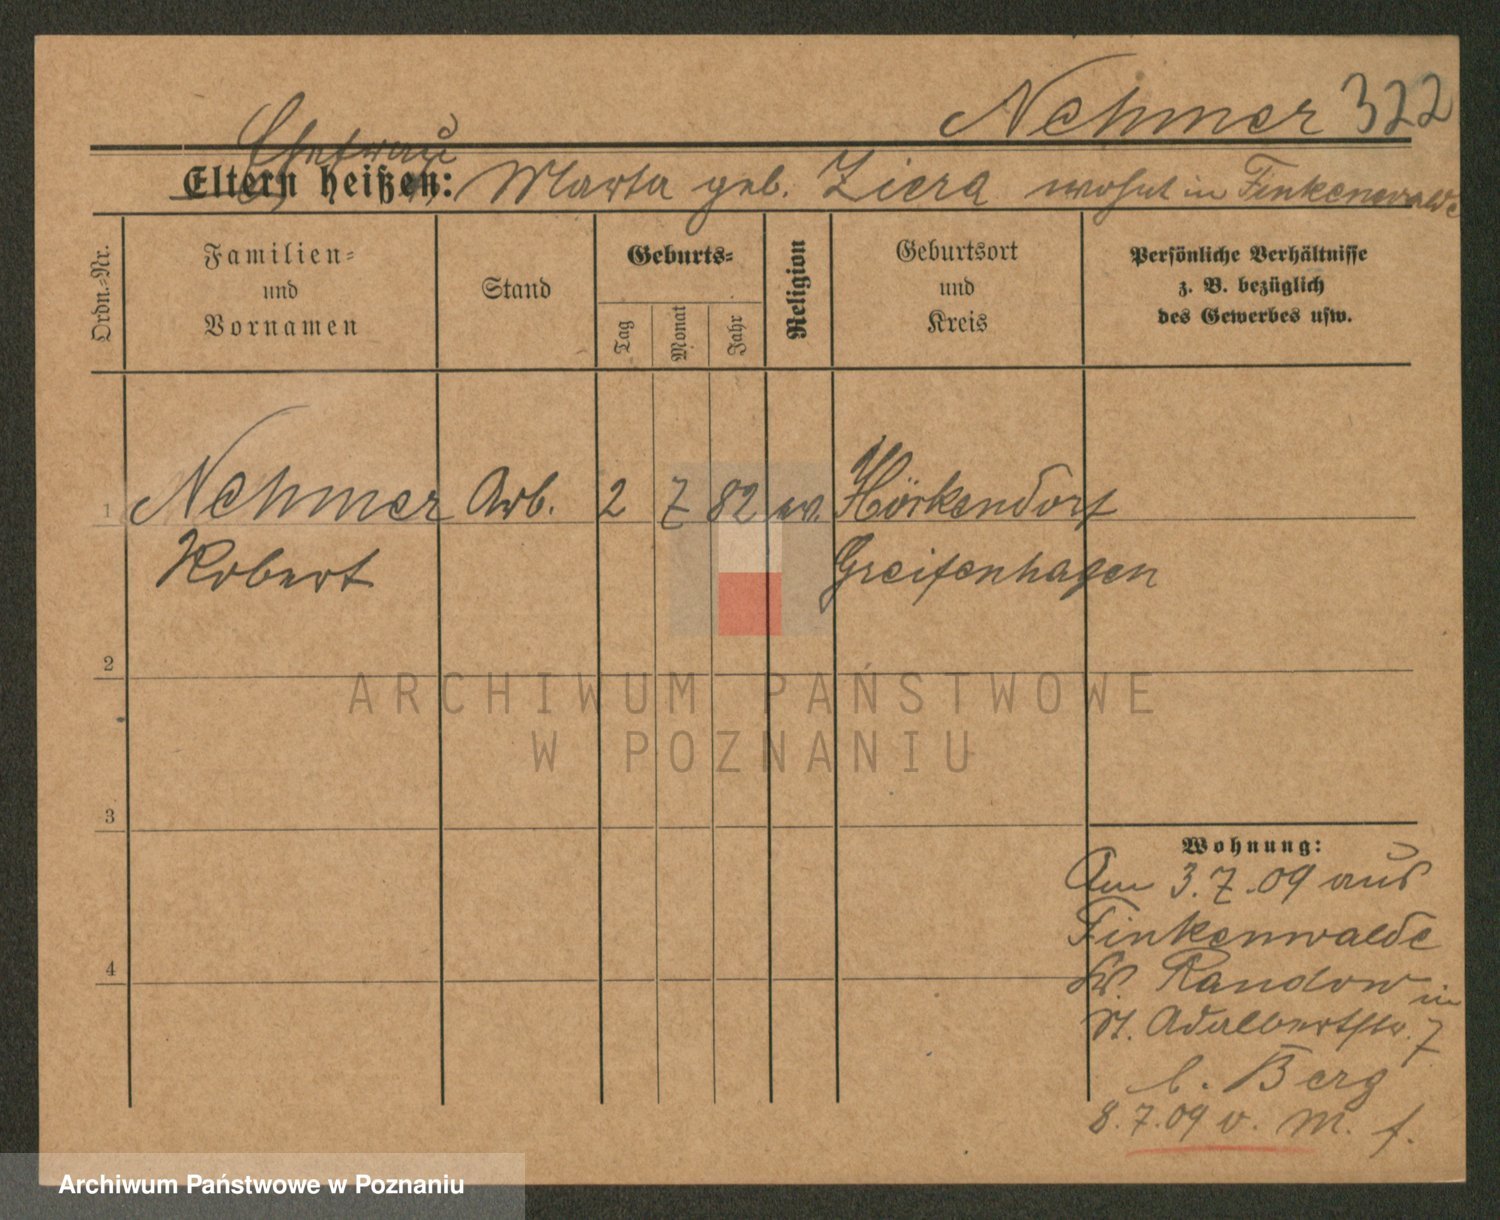 Nehmer 322
Ehefrau
Eltern heißen: Marta geb. Ziera wohnt in Finkenwalde
Ordn.-Nr.
Familien-
und
Vornamen
Stand
Geburts-
Tag
Monat
Jahr
Religion
Geburtsort
und
Kreis
Persönliche Verhältnisse
z. B. bezüglich
des Gewerbes usw.
1 Nehmer Arb. 2 7 82 ev. Hörkendorf
Robert Greifenhagen
2
ARCHIWUM PAŃSTWOWE
W POZNANIU
3
Wohnung:
Am 3.7.09 aus
Finkenwalde
Kr. Randow in
St. Adalbertstr. 7
b. Berg
8.7.09 v. M. f.
4
Archiwum Państwowe w Poznaniu